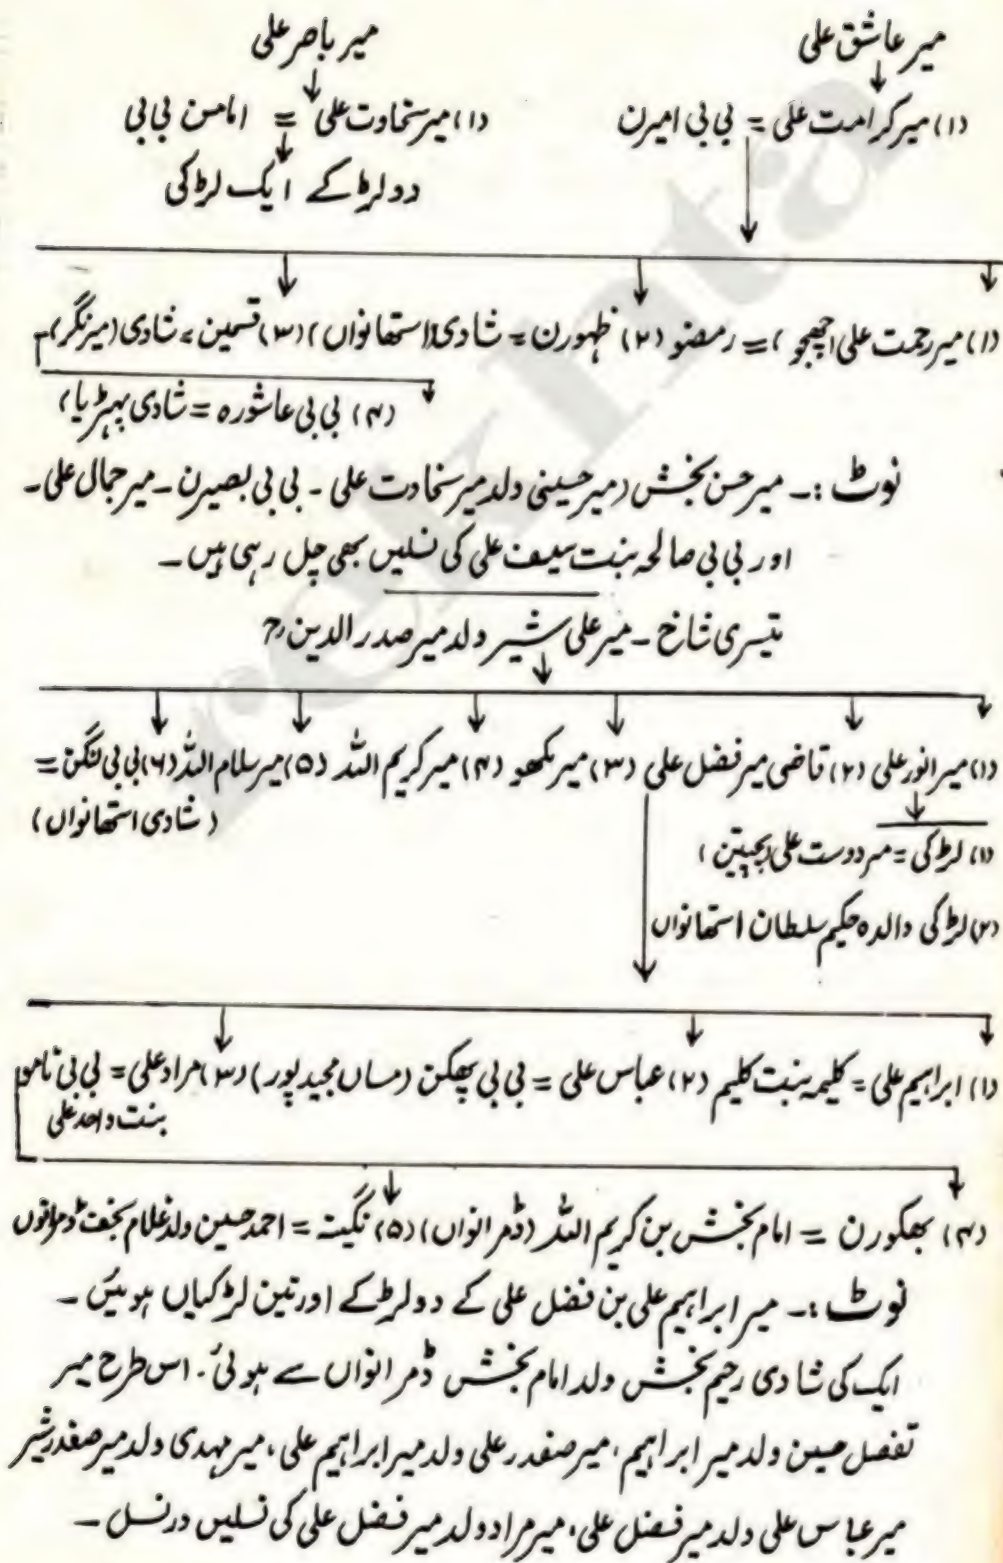 میر عاشق علی
میر باصر علی
(۱) میر کرامت علی = بی بی امیرن
(۱) میر سخاوت علی = امامن بی بی
دو لڑکے ایک لڑکی
(۱) میر رحمت علی (چھجو) = رمضو (۲) ظہورن = شادی (استھانواں) (۳) قسمین = شادی (میر نگر)
(۴) بی بی عاشورہ = شادی پہڑیا)
نوٹ :۔ میر حسن بخش (میر حسینی ولد میر سخادت علی ۔ بی بی بصیرن ۔ میر جمال علی ۔
اور بی بی صالحہ بنت سیف علی کی نسلیں بھی چل رہی ہیں ۔
تیسری شاخ ۔ میر علی شیر ولد میر صدر الدین ر7
(۱) میر انور علی (۲) قاضی میر فضل علی (۳) میر مکھو (۴) میر کریم اللہ (۵) میر سلام اللہ (۶) بی بی لنگن =
(شادی استھانواں)
(۱) لڑکی = میر دوست علی
(۲) لڑکی والدہ حکیم سلطان استھانواں
(۱) ابراہیم علی = کلیمہ بنت کلیم (۲) عباس علی = بی بی پھکن (مساں مجید پور) (۳) مراد علی = بی بی نامو
بنت واحد علی
(۴) بھکورن = امام بخش بن کریم اللہ (ڈمرانواں) (۵) نگینہ = احمد حسین ولد غلام نجف ڈمرانوں
نوٹ :۔ میر ابراہیم علی بن فضل علی کے دو لڑکے اور تین لڑکیاں ہوئیں ۔
ایک کی شادی رحیم بخش ولد امام بخش ڈمرانواں سے ہوئی ۔ اس طرح میر
تفصل حسین ولد میر ابراہیم ، میر صفدر علی ولد میر ابراہیم علی ، میر مہدی ولد میر صفدر شیر
میر عباس علی ولد میر فضل علی ، میر مراد ولد میر فضل علی کی نسلیں در نسل ۔
rekhta